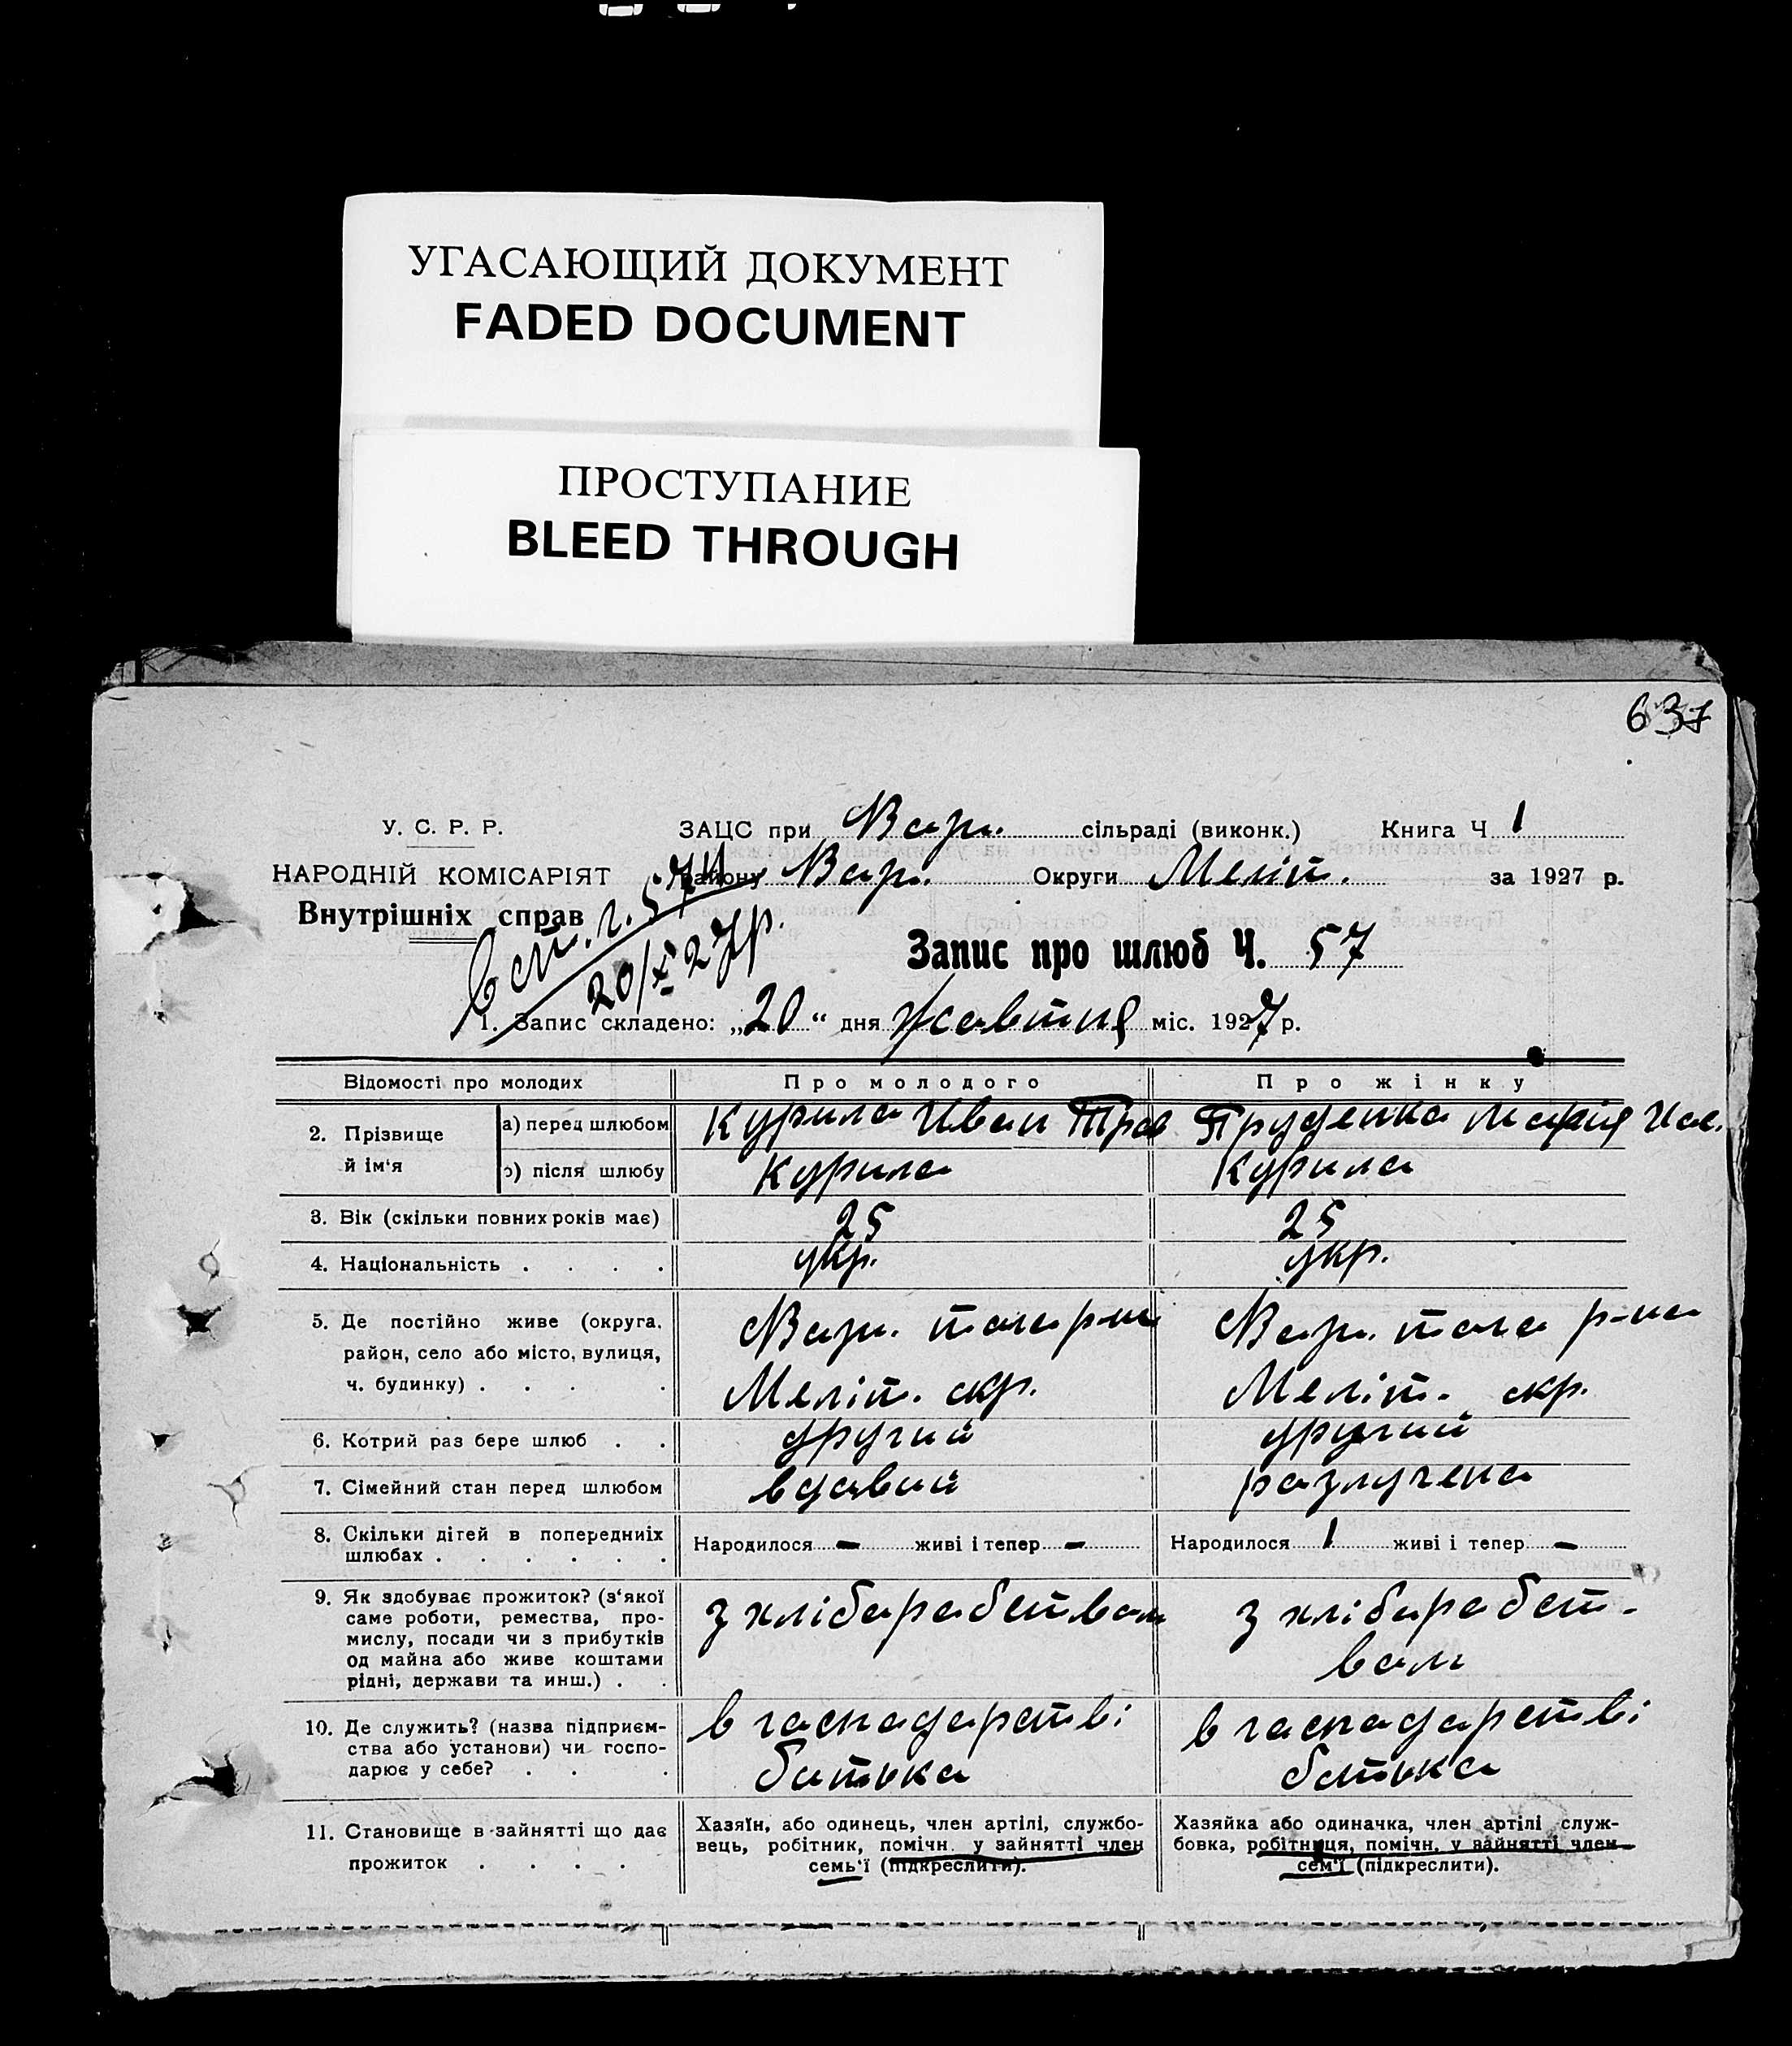 УГАСАЮЩИЙ ДОКУМЕНТ
FADED DOCUMENT
ПРОСТУПАНИЕ
BLEED THROUGH
637
У. С. Р. Р.
НАРОДНІЙ КОМІСАРІЯТ
Внутрішніх справ
ЗАЦС при Вор. сільраді (виконк.) Книга Ч 1
району Вор. Округи Меліт. за 1927 р.
20/X 27р.
Запис про шлюб Ч. 57
1. Запис складено: „20“ дня жовтня міс. 1927 р.
Відомості про молодих Про молодого Про жінку
2. Прізвище й ім‘я
а) перед шлюбом Курило Иван Пруденко Марія
б) після шлюбу Курило Курило
3. Вік (скільки повних років має) 25 25
4. Національність . . . . укр. укр.
5. Де постійно живе (округа,
район, село або місто, вулиця,
ч. будинку) . . . .
Вор. того р-на
Меліт. окр.
Вор. того р-на
Меліт. окр.
6. Котрий раз бере шлюб . . другий другий
7. Сімейний стан перед шлюбом вдовий разлучена
8. Скільки дітей в попередниіх
шлюбах . . . . . .
Народилося - живі і тепер -
Народилося 1 живі і тепер -
9. Як здобуває прожиток? (з‘якої
саме роботи, ремества, про-
мислу, посади чи з прибутків
од майна або живе коштами
рідні, держави та инш.) . .
з хліборобством
з хліборобст-
вом
10. Де служить? (назва підприєм-
ства або установи) чи госпо-
дарює у себе? . . .
в господарстві
батька
в господарстві
батька
11. Становище в зайнятті що дає
прожиток . . . .
Хазяїн, або одинець, член артілі, службо-
вець, робітник, помічн. у зайнятті член
семь‘ї (підкреслити).
Хазяйка або одиначка, член артілі служ-
бовка, робітниця, помічн. у зайнятті член
сем‘ї (підкреслити).